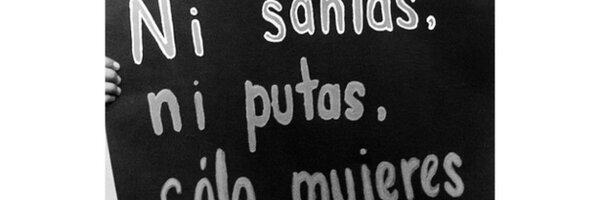 Ni santas,
ni putas,
sólo mujeres